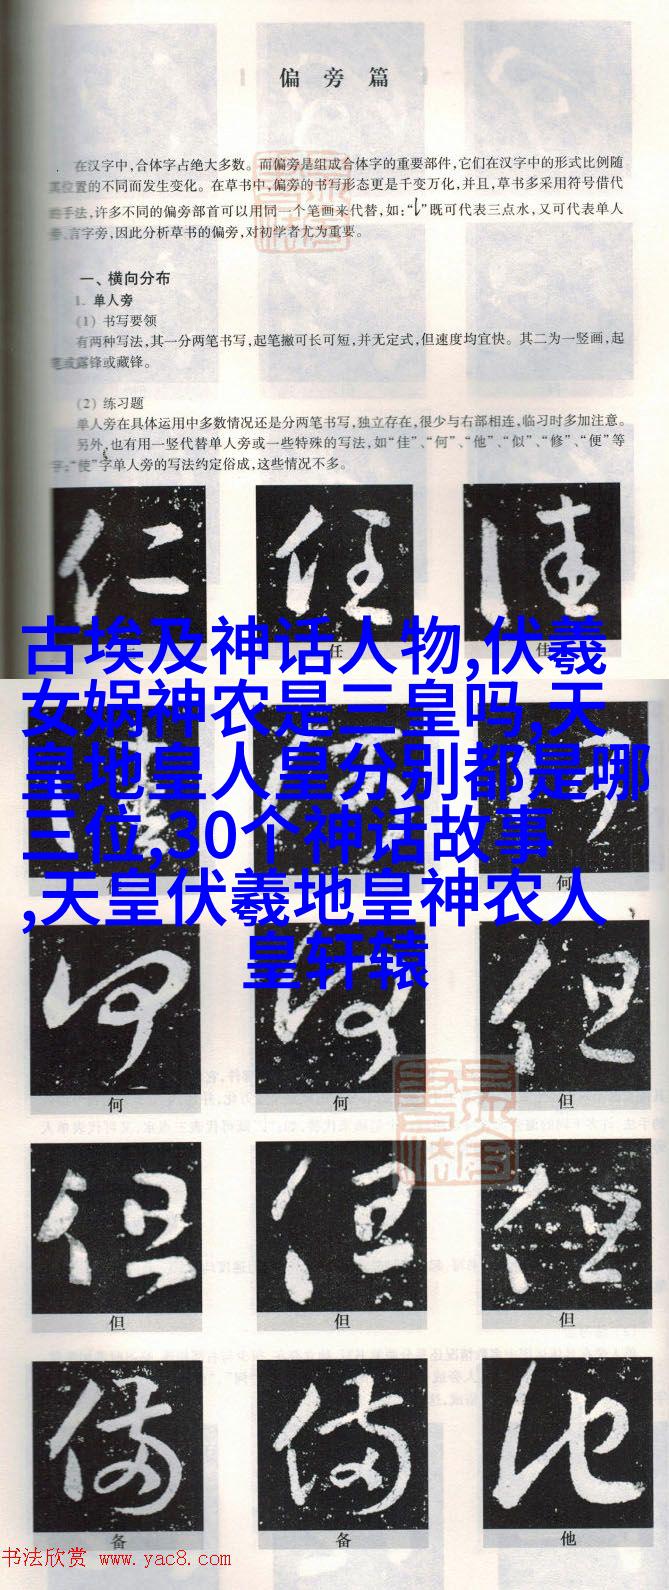 偏旁篇
在汉字中,合体字占绝大多数。而偏旁是组成合体字的重要部件,它们在汉字中的形式比例随
其位置的不同而发生变化。在草书中,偏旁的书写形态更是千变万化,并且,草书多采用符号借代
的手法,许多不同的偏旁部首可以用同一个笔画来代替,如:“ ”既可代表三点水,又可代表单人
旁、言字旁,因此分析草书的偏旁,对初学者尤为重要。
一、横向分布
1. 单人旁
(1) 书写要领
有两种写法,其一分两笔书写,起笔撇可长可短,并无定式,但速度均宜快。其二为一竖画,起
笔或露锋或藏锋。
(2) 练习题
单人旁在具体运用中多数情况还是分两笔书写,独立存在,很少与右部相连,临习时多加注意。
另外,也有用一竖代替单人旁或一些特殊的写法,如“佳”、“何”、“他”、“似”、“修”、“便”等
字;“使”字单人旁的写法约定俗成,这些情况不多。
仁 任 佳
任 佳
古埃及神话人物,伏羲
女娲神农是三皇吗,天
皇地皇人皇分别都是哪
三位,30个神话故事
,天皇伏羲地皇神农人
皇轩辕
何
何 何 但
何 何 但
但 但 但
但 但 但
备 备 他
备 备 他
书法欣赏 www.yac8.com